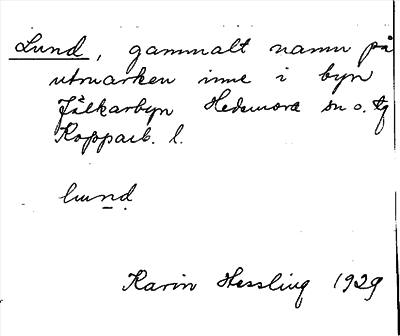 Lund, gammalt namn på
utmarken inne i byn
Fälkarbyn Hedemora sn o. tg
Kopparb. l.
lund
Karin Hessling 1929